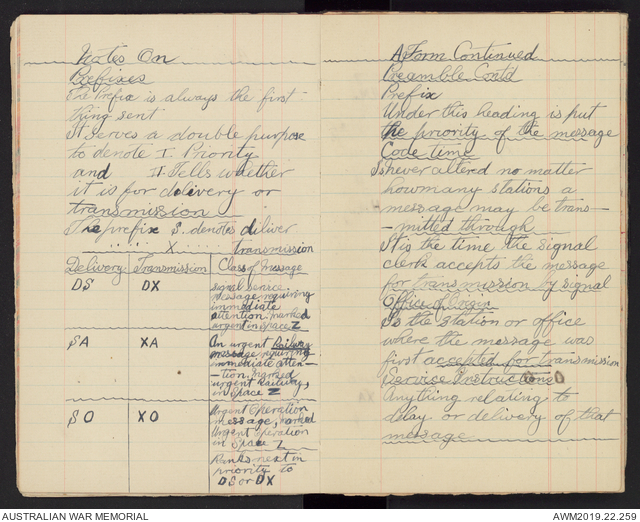 Notes On
Prefixes
The Prefix is always the first
thing sent
It serves a double purpose
to denote I. Priority
and II. Tells whether
it is for delivery or
transmission
The prefix S. denotes deliver
" " X " transmission
Delivery Transmission Class of Message
DS DX Signal service
message requiring
immediate
attention. marked
urgent in Space Z
SA XA An urgent Railway
message requiring
immediate atten-
-tion. marked
urgent Railway,
in Space Z
SO XO Urgent Operation
message, marked
Urgent operation
in Space Z
Ranks next in
priority to
DS or DX
A Form Continued
Preamble Cont'd
Prefix
Under this heading is put
the priority of the message
Code time
Is never altered no matter
how many stations a
message may be trans-
-mitted through
It is the time the signal
clerk accepts the message
for transmission by signal
Office of Origin
Is the station or office
where the message was
first accepted for transmission
Service Instructions
Anything relating to
delay or delivery of that
message
AUSTRALIAN WAR MEMORIAL
AWM2019.22.259